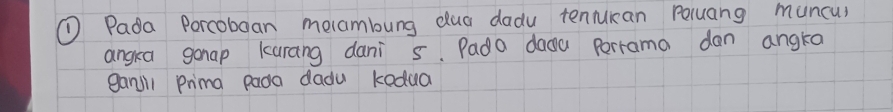 ① Pada Porcobaan melambung dua dadu tentukan Poluang muncul
angka gonap kurang dani 5. Pada dadu Portama dan angka
ganjil Prima pada dadu kodua